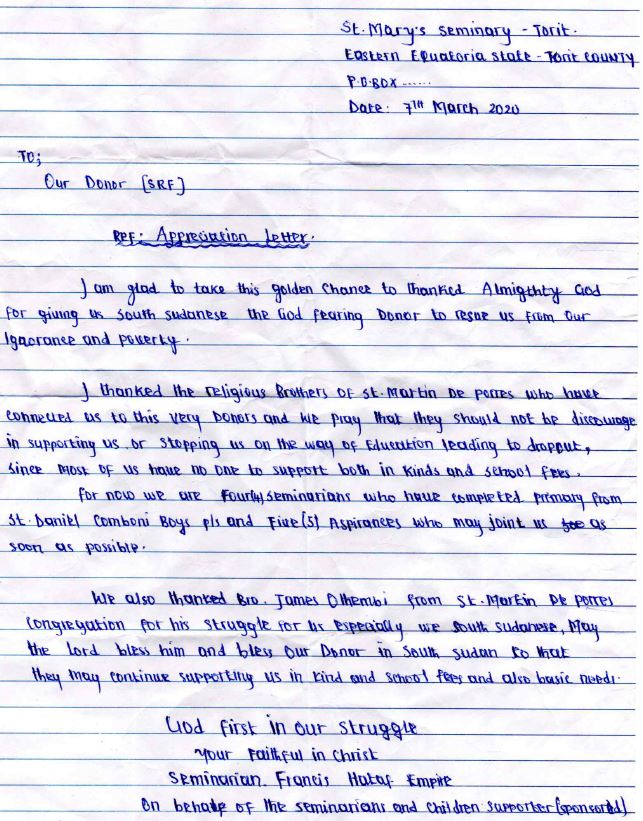 St. Mary's seminary - Torit.
Eastern Equatoria state - Torit COUNTY
P.O.BOX ......
Date: 7TH March 2020
TO;
Our Donor [SRF]
REF: Appreciation Letter.
I am glad to take this golden Chance to thanked Almighthty God
for giving us South sudanese the God fearing Donor to resue us from our
Igacrance and poverty.
I thanked the religious Brothers of St. Martin De Porres who have
connected us to this very Donors and we pray that they should not be discourage
in supporting us or stopping us on the way of Education leading to dropout,
since most of us have no one to support both in kinds and school fees.
for now we are Four(4) seminarians who have completed primary from
St. Daniel Comboni Boys p/s and Five (5) Aspirances who may joint us as
soon as possible.
We also thanked Bro. James Othembi from St. Martin De Porres
congregation for his struggle for us especially we south sudanese, May
the Lord bless him and bless Our Donor in South Sudan so that
they may continue supporting us in kind and school fees and also basic needs.
God first in our struggle
Your Faithful in Christ
Seminarian. Francis Empire
On behalf of the seminarians and children supporter (sponsored)